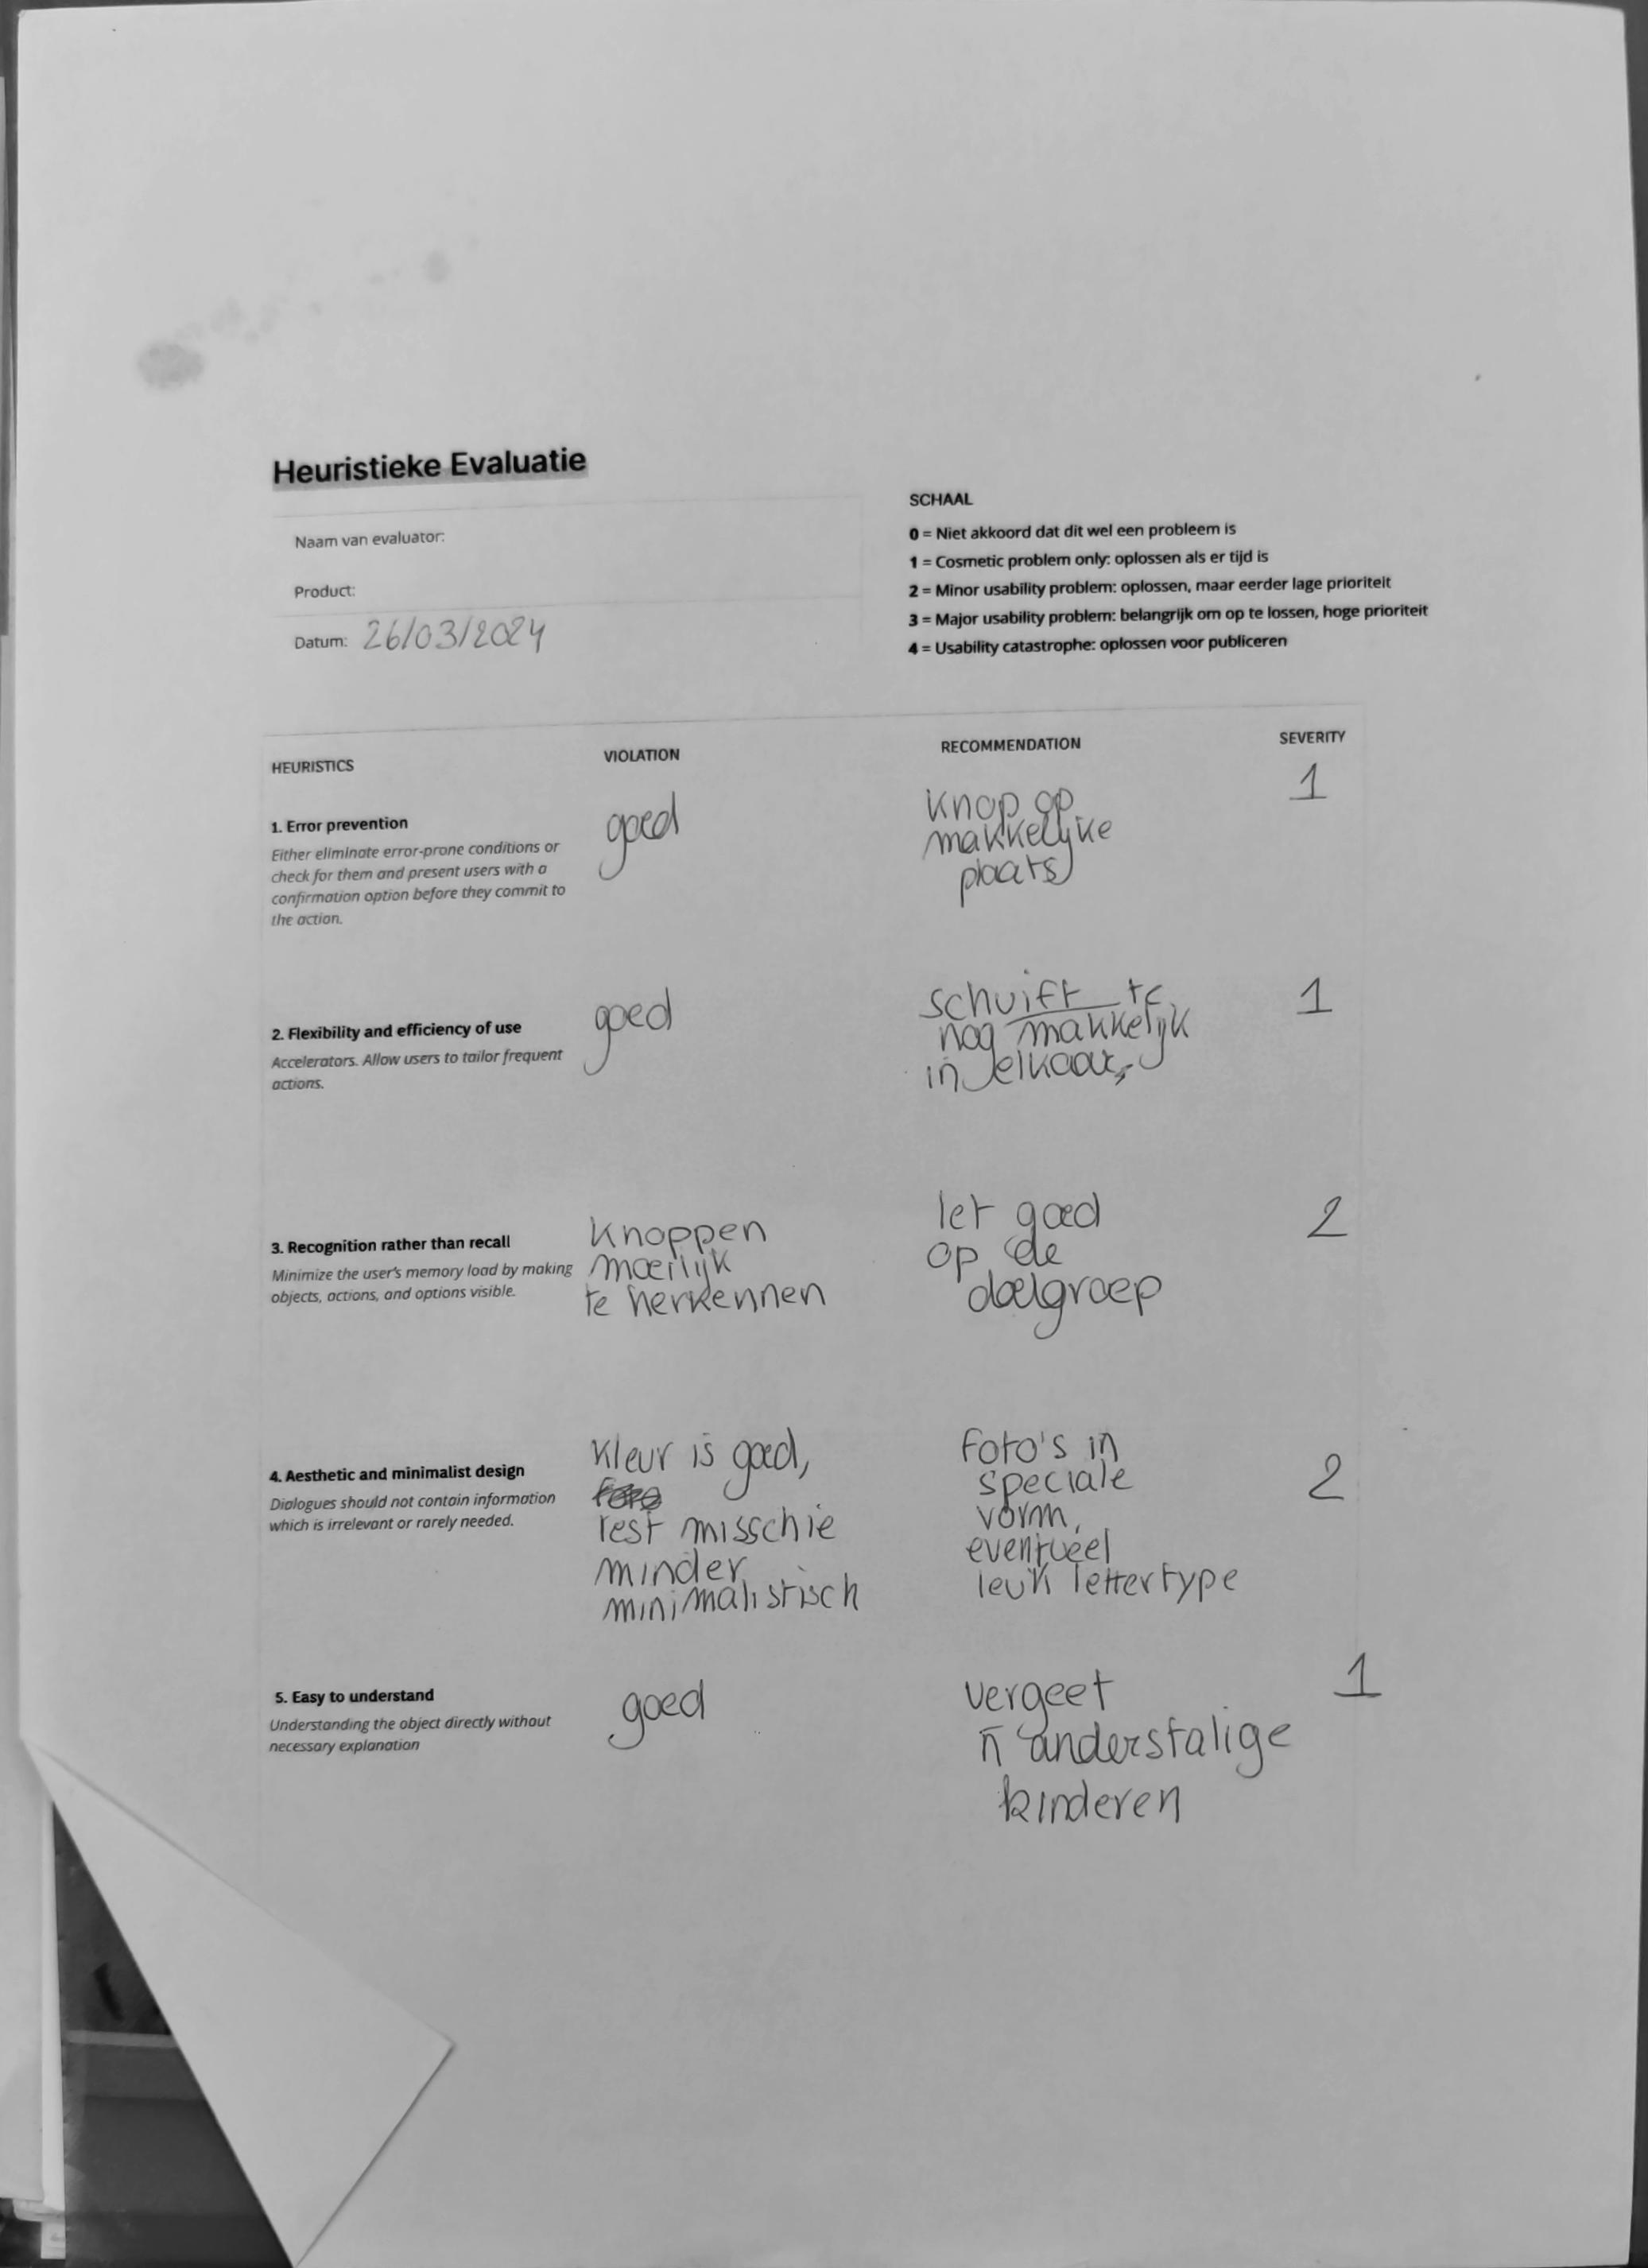 Heuristieke Evaluatie
Naam van evaluator:
Product:
Datum: 26/03/2024
SCHAAL
0 = Niet akkoord dat dit wel een probleem is
1 = Cosmetic problem only: oplossen als er tijd is
2 = Minor usability problem: oplossen, maar eerder lage prioriteit
3 = Major usability problem: belangrijk om op te lossen, hoge prioriteit
4 = Usability catastrophe: oplossen voor publiceren
HEURISTICS
VIOLATION
RECOMMENDATION
SEVERITY
1. Error prevention
Either eliminate error-prone conditions or
check for them and present users with a
confirmation option before they commit to
the action.
goed
Knop op
makkelijke
plaats
1
2. Flexibility and efficiency of use
Accelerators. Allow users to tailor frequent
actions.
goed
schuift te
nog makkelijk
in elkaar
1
3. Recognition rather than recall
Minimize the user's memory load by making
objects, actions, and options visible.
Knoppen
moeilijk
te herkennen
let goed
op de
doelgroep
2
4. Aesthetic and minimalist design
Dialogues should not contain information
which is irrelevant or rarely needed.
Kleur is goed,
rest misschie
minder
minimalistisch
Foto's in
speciale
vorm,
eventueel
leuk lettertype
2
5. Easy to understand
Understanding the object directly without
necessary explanation
goed
vergeet
n̄ anderstalige
kinderen
1